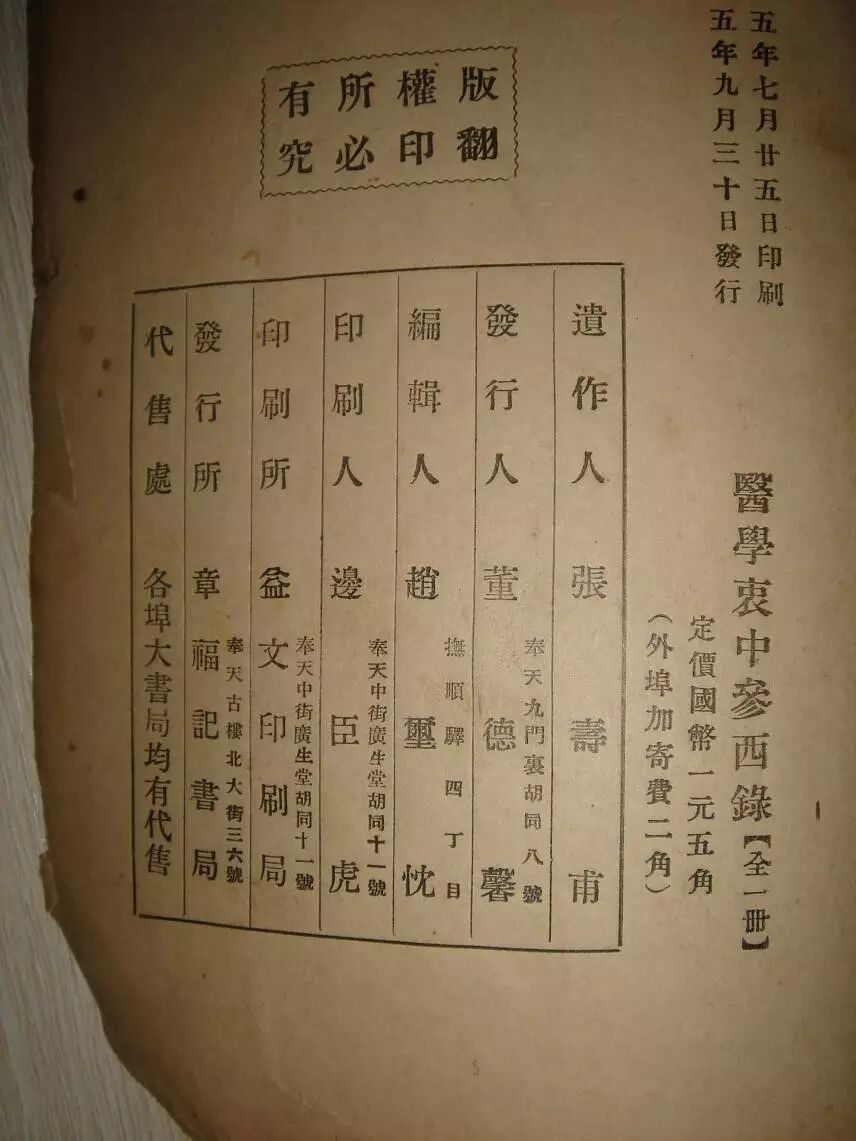 五年七月廿五日印刷
五年九月三十日發行
版權所有
翻印必究
醫學衷中參西錄【全一冊】
定價國幣一元五角
（外埠加寄費二角）
遺作人 張壽甫
發行人 董德馨 奉天九門裏胡同八號
編輯人 趙璽忱 撫順驛四丁目
印刷人 邊臣虎 奉天中街廣生堂胡同十一號
印刷所 益文印刷局 奉天中街廣生堂胡同十一號
發行所 章福記書局 奉天古樓北大街三六號
代售處 各埠大書局均有代售